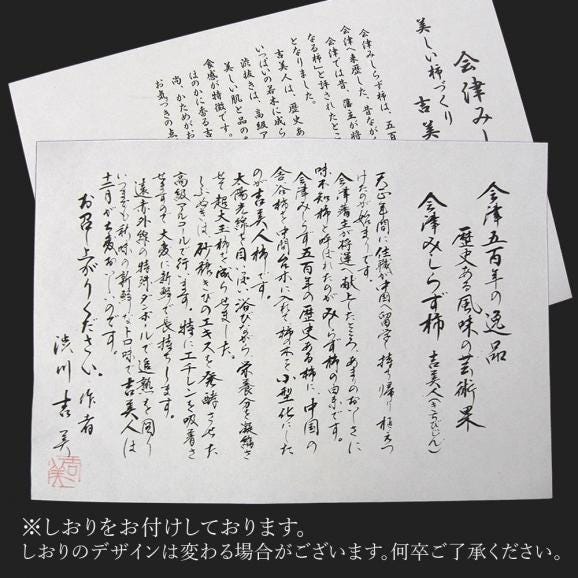 会津五百年の逸品
歴史ある風味の芸術果
会津みしらず柿 吉美人(きちびじん)
天正年間に住職が中国へ留学し持ち帰り植えつ
けたのが始まりです。
会津藩主が将軍へ献上したところ、あまりのおいしさに
味不知柿と呼ばれたのがみしらず柿の由来です。
会津みしらず五百年の歴史ある柿に、中国の
のが吉美人柿です。
太陽光線を
超大玉柿を成らせました。
高級アルコールで行ます。特にエチレンを吸着さ
せますので大変に新鮮で長持ちします。
遠赤外線の特殊ダンボールで追熟を図り
お召し上がりください。作者
渋川吉美
会津みし
美しい柿づくり 吉美
会津みしらず柿は、五百
会津へ来歴した、昔なが
会津では昔、藩主が将
なる柿」と評されたとこ
となりました。
吉美人は、歴史あ
いっぱいの名木に成ら
渋抜きは、高級ア
美しい肌と品の
食感が特徴です。
ほのかに香る古
尚、かためがお
お気づきの点
※しおりをお付けしております。
しおりのデザインは変わる場合がございます。何卒ご了承ください。